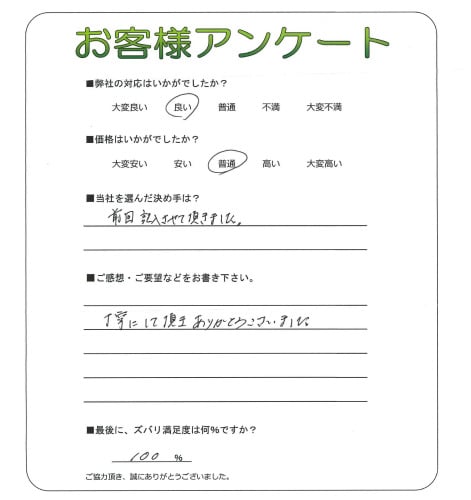 お客様アンケート
■弊社の対応はいかがでしたか？
大変良い 良い 普通 不満 大変不満
■価格はいかがでしたか？
大変安い 安い 普通 高い 大変高い
■当社を選んだ決め手は？
前回記入させて頂きました。
■ご感想・ご要望などをお書き下さい。
丁寧にして頂きありがとうございました
■最後に、ズバリ満足度は何％ですか？
100 %
ご協力頂き、誠にありがとうございました。